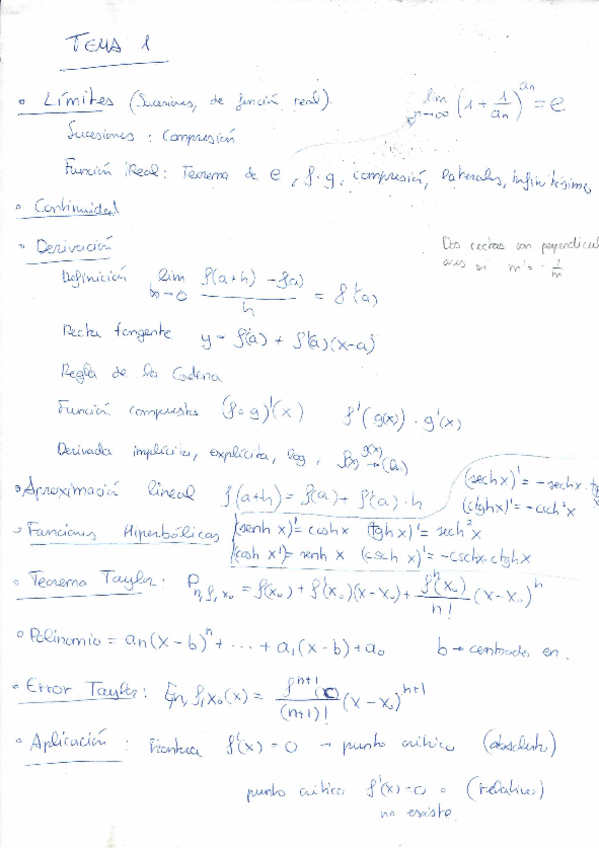 TEMA 1
• Límites (Sucesiones, de función real).
lim n→∞ (1 + 1/an)^an = e
Sucesiones : Compresión
Función Real: Teorema de e, f·g, compresión, laterales, infinitésimo
• Continuidad
• Derivación
Dos rectas son perpendicul
ares si m' = -1/m
Definición lim h→0 (f(a+h) - f(a))/h = f'(a)
Recta tangente y = f(a) + f'(a)(x-a)
Regla de la Cadena
Función compuesta (f∘g)'(x) f'(g(x))·g'(x)
Derivada implícita, explícita, log, f(x)^g(x) → (ln)
(sech x)' = -sech x · tg
(ctgh x)' = -csch²x
• Aproximación lineal f(a+h) = f(a) + f'(a)·h
• Funcions Hiperbólicas (senh x)' = cosh x (tgh x)' = sech²x
(cosh x)' = senh x (csch x)' = -csch x · ctgh x
• Teorema Taylor: P n,f,x₀ = f(x₀) + f'(x₀)(x-x₀) + fⁿ(x₀)/n! (x-x₀)ⁿ
• Polinomio = an(x-b)ⁿ + ... + a₁(x-b) + a₀ b → centrado en.
• Error Taylor: E n,f,x₀(x) = f^(n+1)(c)/(n+1)! (x-x₀)^(n+1)
• Aplicación : Frontera f'(x) = 0 → punto crítico (absoluto)
punto crítico f'(x) = 0 o (relativo)
no existe.